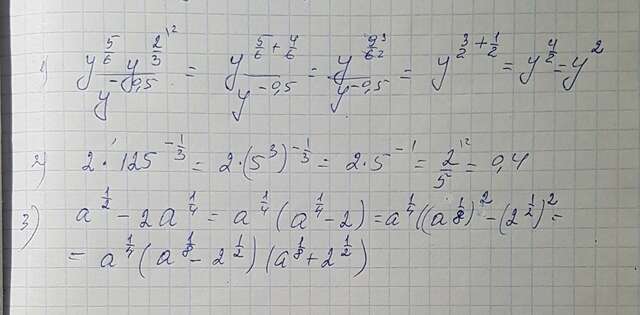 1) (y^(5/6) y^(2/3 \2))/(y^(-0,5)) = (y^(5/6 + 4/6))/(y^(-0,5)) = (y^(9/6 \3/2))/(y^(-0,5)) = y^(3/2 + 1/2) = y^(4/2) = y^2
2) 2 · 125^(-1/3) = 2·(5^3)^(-1/3) = 2·5^(-1) = 2/5 \2 = 0,4
3) a^(1/2) - 2a^(1/4) = a^(1/4) (a^(1/4) - 2) = a^(1/4) ((a^(1/8))^2 - (2^(1/2))^2 =
= a^(1/4) (a^(1/8) - 2^(1/2)) (a^(1/8) + 2^(1/2))